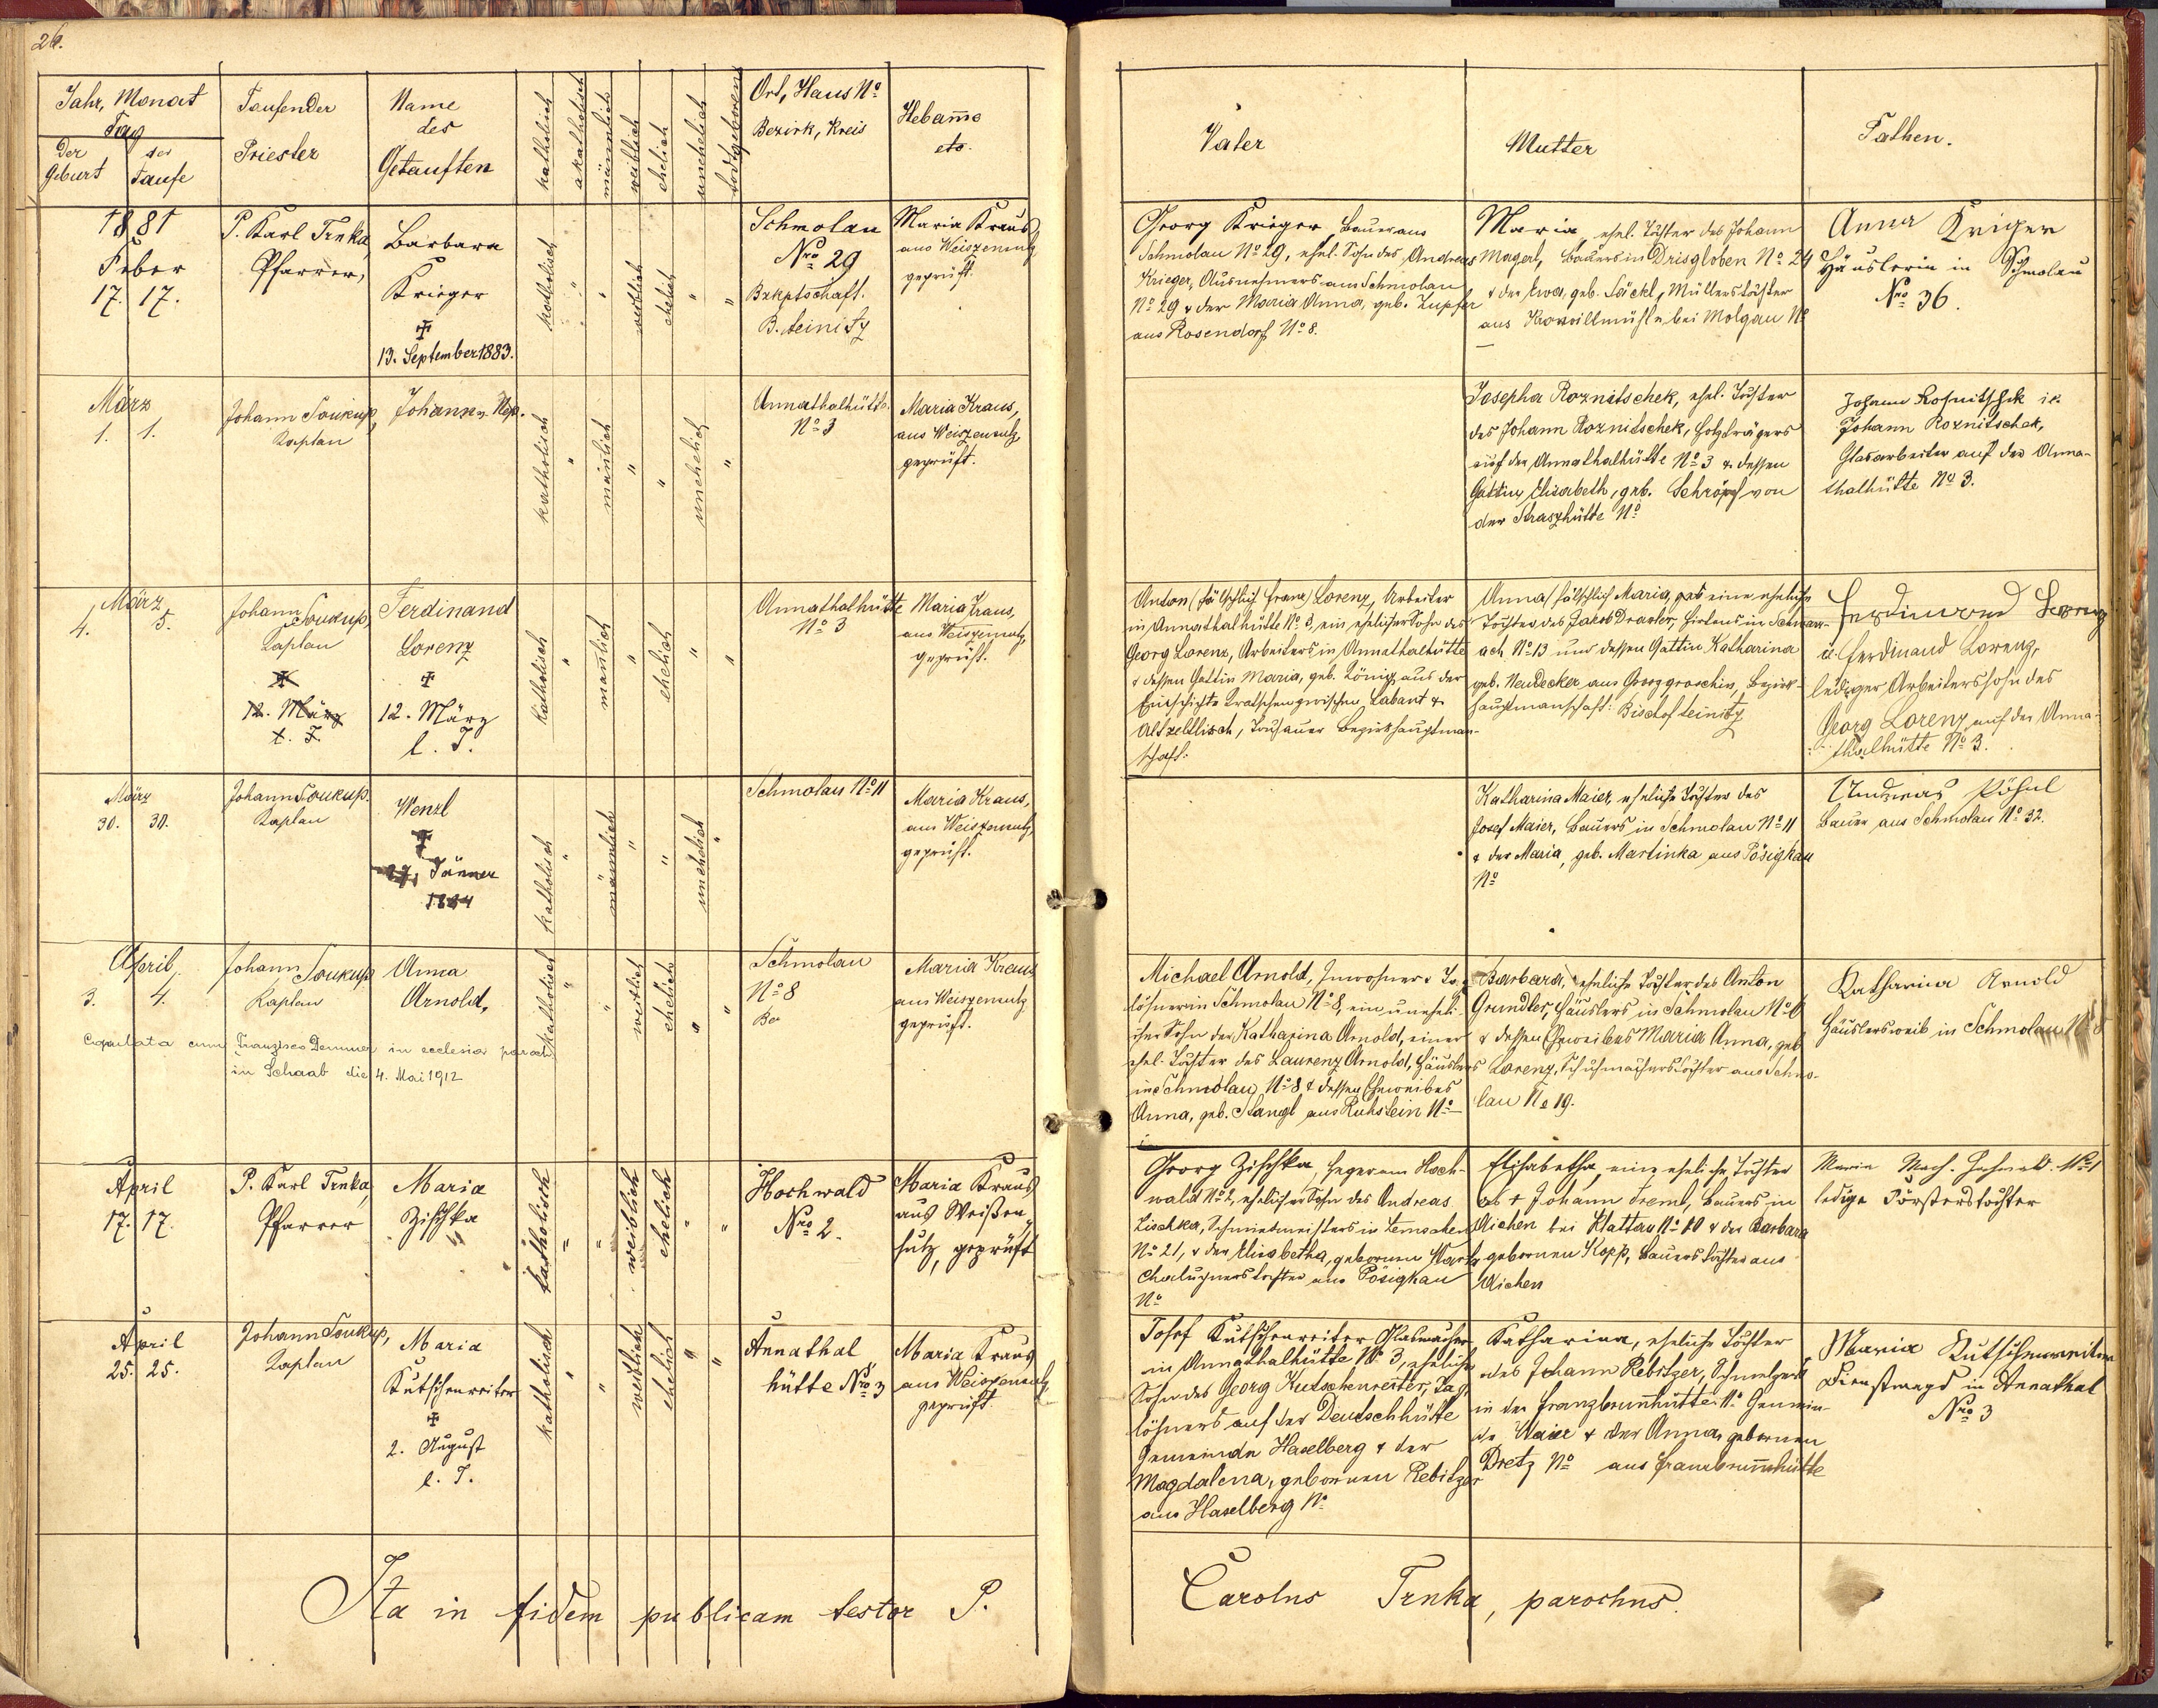 26.
Jahr, Monat
Tag
der Geburt
der Taufe
Taufender
Priester
Name
des
Getauften
katholisch
akatholisch
männlich
weiblich
ehelich
unehelich
todtgeboren
Ort, Haus No
Bezirk, Kreis
Hebam̄e
etc.
Vater
Mutter
Pathen.
1881
Feber
17. 17.
P. Karl Trnka,
Pfarrer,
Barbara
Krieger
✝
13. September 1883.
katholisch
"
"
weiblich
ehelich
"
"
Schmolau
Nro 29
Bzkptschaft.
B. teinitz
Maria Kraus
aus Weiszensulz
geprüft.
Georg Krieger, Bauer aus
Schmolau No 29, ehel. Sohn des Andreas
Krieger, Ausnehmers aus Schmolau
No 29 & der Maria Anna, geb. Zupfer
aus Rosendorf No 8.
Maria, ehel. Tochter des Johann
Magerl, Bauers in Drisgloben No 24
& der Ewa, geb. Säckl, Müllerstochter
aus bei Molgau No
Anna Kriger
Häuslerin in Schmolau
Nro 36.
März
1. 1.
Johann Soukup,
Kaplan
Johann Nep.
katholisch
"
mänlich
"
"
unehelich
"
Annathalhütte
No 3
Maria Kraus,
aus Weiszensulz
geprüft.
Josepha Roznitschek, ehel. Tochter
des Johann Roznitschek, Holzträgers
auf der Annathalhütte No 3 & dessen
Gattin Elisabeth, geb. Schröpf von
der Straszhütte No
Johann Rosnitschek id.
Johann Roznitschek,
Glasarbeiter auf der Anna-
thalhütte No 3.
März
4. 5.
Johann Soukup,
Kaplan
✝
12. März
l. J.
Ferdinand
Lorenz
✝
12. März
l. J.
katholisch
"
manlich
"
ehelich
"
"
Annathalhütte
No 3
Maria Kraus,
aus Weiszensulz,
geprüft.
Anton (fälschlich Franz) Lorenz, Arbeiter
in Annathalhütte No 3, ein ehelicher Sohn des
Georg Lorenz, Arbeiters in Annathalhütte
& dessen Gattin Maria, geb. König aus der
Einschichte Kratschen zwischen Labant &
Altzedlisch, Tachauer Bezirkshauptman-
schaft.
Anna (fälschlich Maria, eine eheliche
Tochter des Jakob Draxler, Hirtens in Schwan-
ach No 13 und dessen Gattin Katharina
geb. Neudecker aus Grossgroschin, Bezirk-
hauptmanschaft: Bischofteinitz
Ferdinand Lorenz
id. Ferdinand Lorenz,
lediger Arbeiterssohn des
Georg Lorenz auf der Anna-
thalhütte No 3.
März
30. 30.
Johann Soukup.
Kaplan
Wenzl
✝
Jänner
katholisch
"
mämlich
"
"
unehelich
"
Schmolau No 11
Maria Kraus,
aus Weiszensulz
geprüft.
Katharina Maier, eheliche Tochter des
Josef Maier, Bauers in Schmolau No 11
& der Maria, geb. Martinka aus Pösigkau
No
Andreas Pöhnl
Bauer aus Schmolau No 32.
April
3. 4.
Johann Soukup
Kaplan
Anna
Arnold,
katholisch
"
"
weiblich
ehelich
"
"
Schmolau
No 8
Be
Maria Kraus
aus Weiszensulz
geprüft.
Copulata cum Franzisco Demmer in ecclesia paroch
in Schaab die 4. Mai 1912
Michael Arnold, Inwohner & Ta-
löhner in Schmolau No 8, ein unehli-
cher Sohn der Katharina Arnold, einer
ehel. Tochter des Laurenz Arnold, Häuslers
in Schmolau No 8 & dessen Eheweibes
Anna, geb. Stangl aus Ruhstein No
Barbara, eheliche Tochter des Anton
Grundler, Häuslers in Schmolau No 6
& dessen Eheweibes Maria Anna, geb
Lorenz, Schuhmacherstochter aus Schmo-
lau No 19.
Katharina Arnold
Häuslersweib in Schmolau No 8
April
17. 17.
P. Karl Trnka,
Pfarrer
Maria
Zischka
katholisch
"
"
weiblich
ehelich
"
"
Hochwald
Nro 2.
Maria Kraus
aus Weißen
sulz, geprüft
Georg Zischka, Heger am Hoch-
wald No 2, ehelicher Sohn des Andreas
Zischka, Schmiedmeisters in Zemschen
No 21, & der Elisabetha, gebornen
Chaluppnerstochter aus Pösigkau
No
Elisabetha, eine eheliche Tochter
des & Johann Treml, Bauers in
Aichen bei Klattau No 10 & der Barbara
gebornen Kopp, Bauerstochter aus
Aichen
Maria Mach. Hochwald. No 1
ledige Försterstochter
April
25. 25.
Johann Soukup,
Kaplan
Maria
Kutschenreiter
✝
2. August
l. J.
katholisch
"
"
weiblich
ehelich
"
"
Annathal
hütte Nro 3
Maria Kraus
aus Weiszensulz
geprüft
Josef Kutschenreiter Glasmacher
in Annathalhütte No 3, ehelicher
Sohn des Georg Kutschenreiter, Tag-
löhners auf der Deutschhütte
Gemeinde Haselberg & der
Magdalena, gebornen Rebitzer
aus Haselberg No
Katharina, eheliche Tochter
des Johann Rebitzer, Schmelzers
in der Franzbrunhütte No Gemein-
de Waier & der Anna, gebornen
Dretz No aus Franzbrunnhütte
Maria Kutschenreiter
Dienstmagd in Annathal
Nro 3
Ita in fidem publicam testor P. Carolus Trnka, parochus.